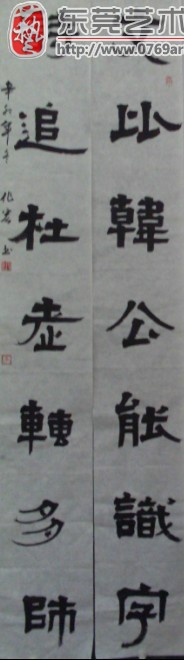 东莞艺术
http://www.0769ar
比韓公能識字
追杜老轉多師
辛卯年